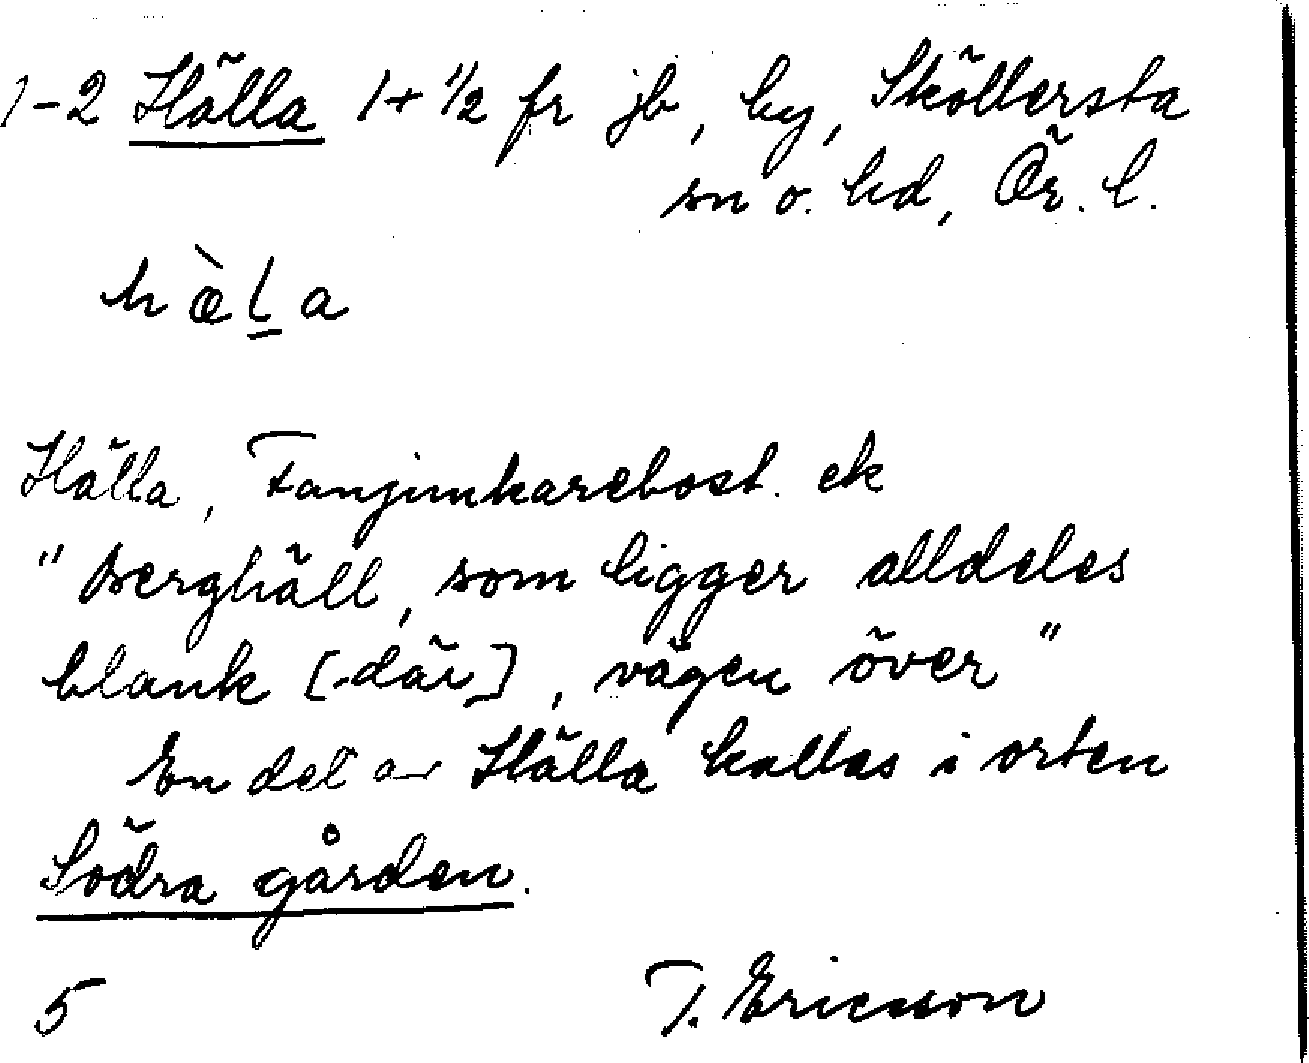 1-2 Hälla 1+1/2 fr jb, by, Sköllersta
sn o. hd, Ör. l.
hæ̀l̲a
Hälla, Fanjunkarebost. ek
"Berghäll, som ligger alldeles
blank [där], vägen över"
En del av Hälla kallas i orten
Södra gården.
5 T. Ericsson